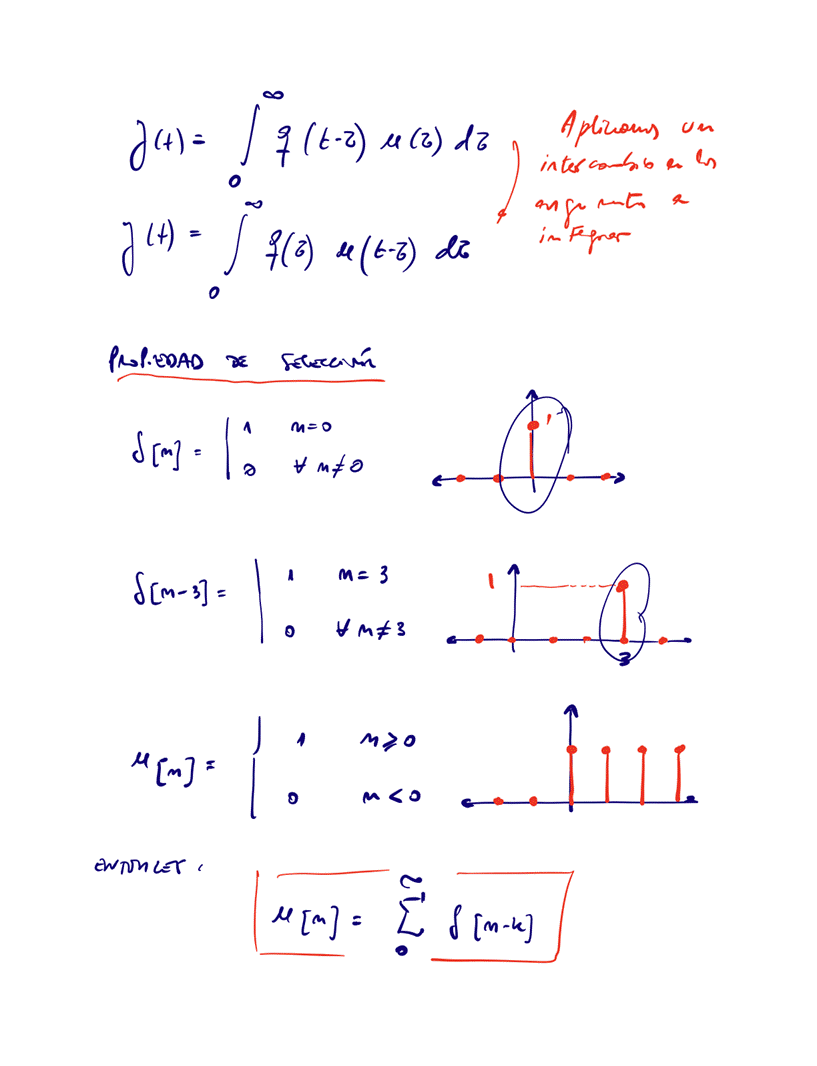 y(t) = ∫₀^∞ g(t-τ) u(τ) dτ
Aplicamos un
intercambio en los
argumentos a
integrar
y(t) = ∫₀^∞ g(τ) u(t-τ) dτ
PROPIEDAD DE SELECCIÓN
δ[n] = | 1 n=0
| 0 ∀ n≠0
1
δ[n-3] = | 1 n=3
| 0 ∀ n≠3
1
3
u[n] = { 1 n≥0
0 n<0
ENTONCES:
u[n] = Σ₀^∞ δ[n-k]